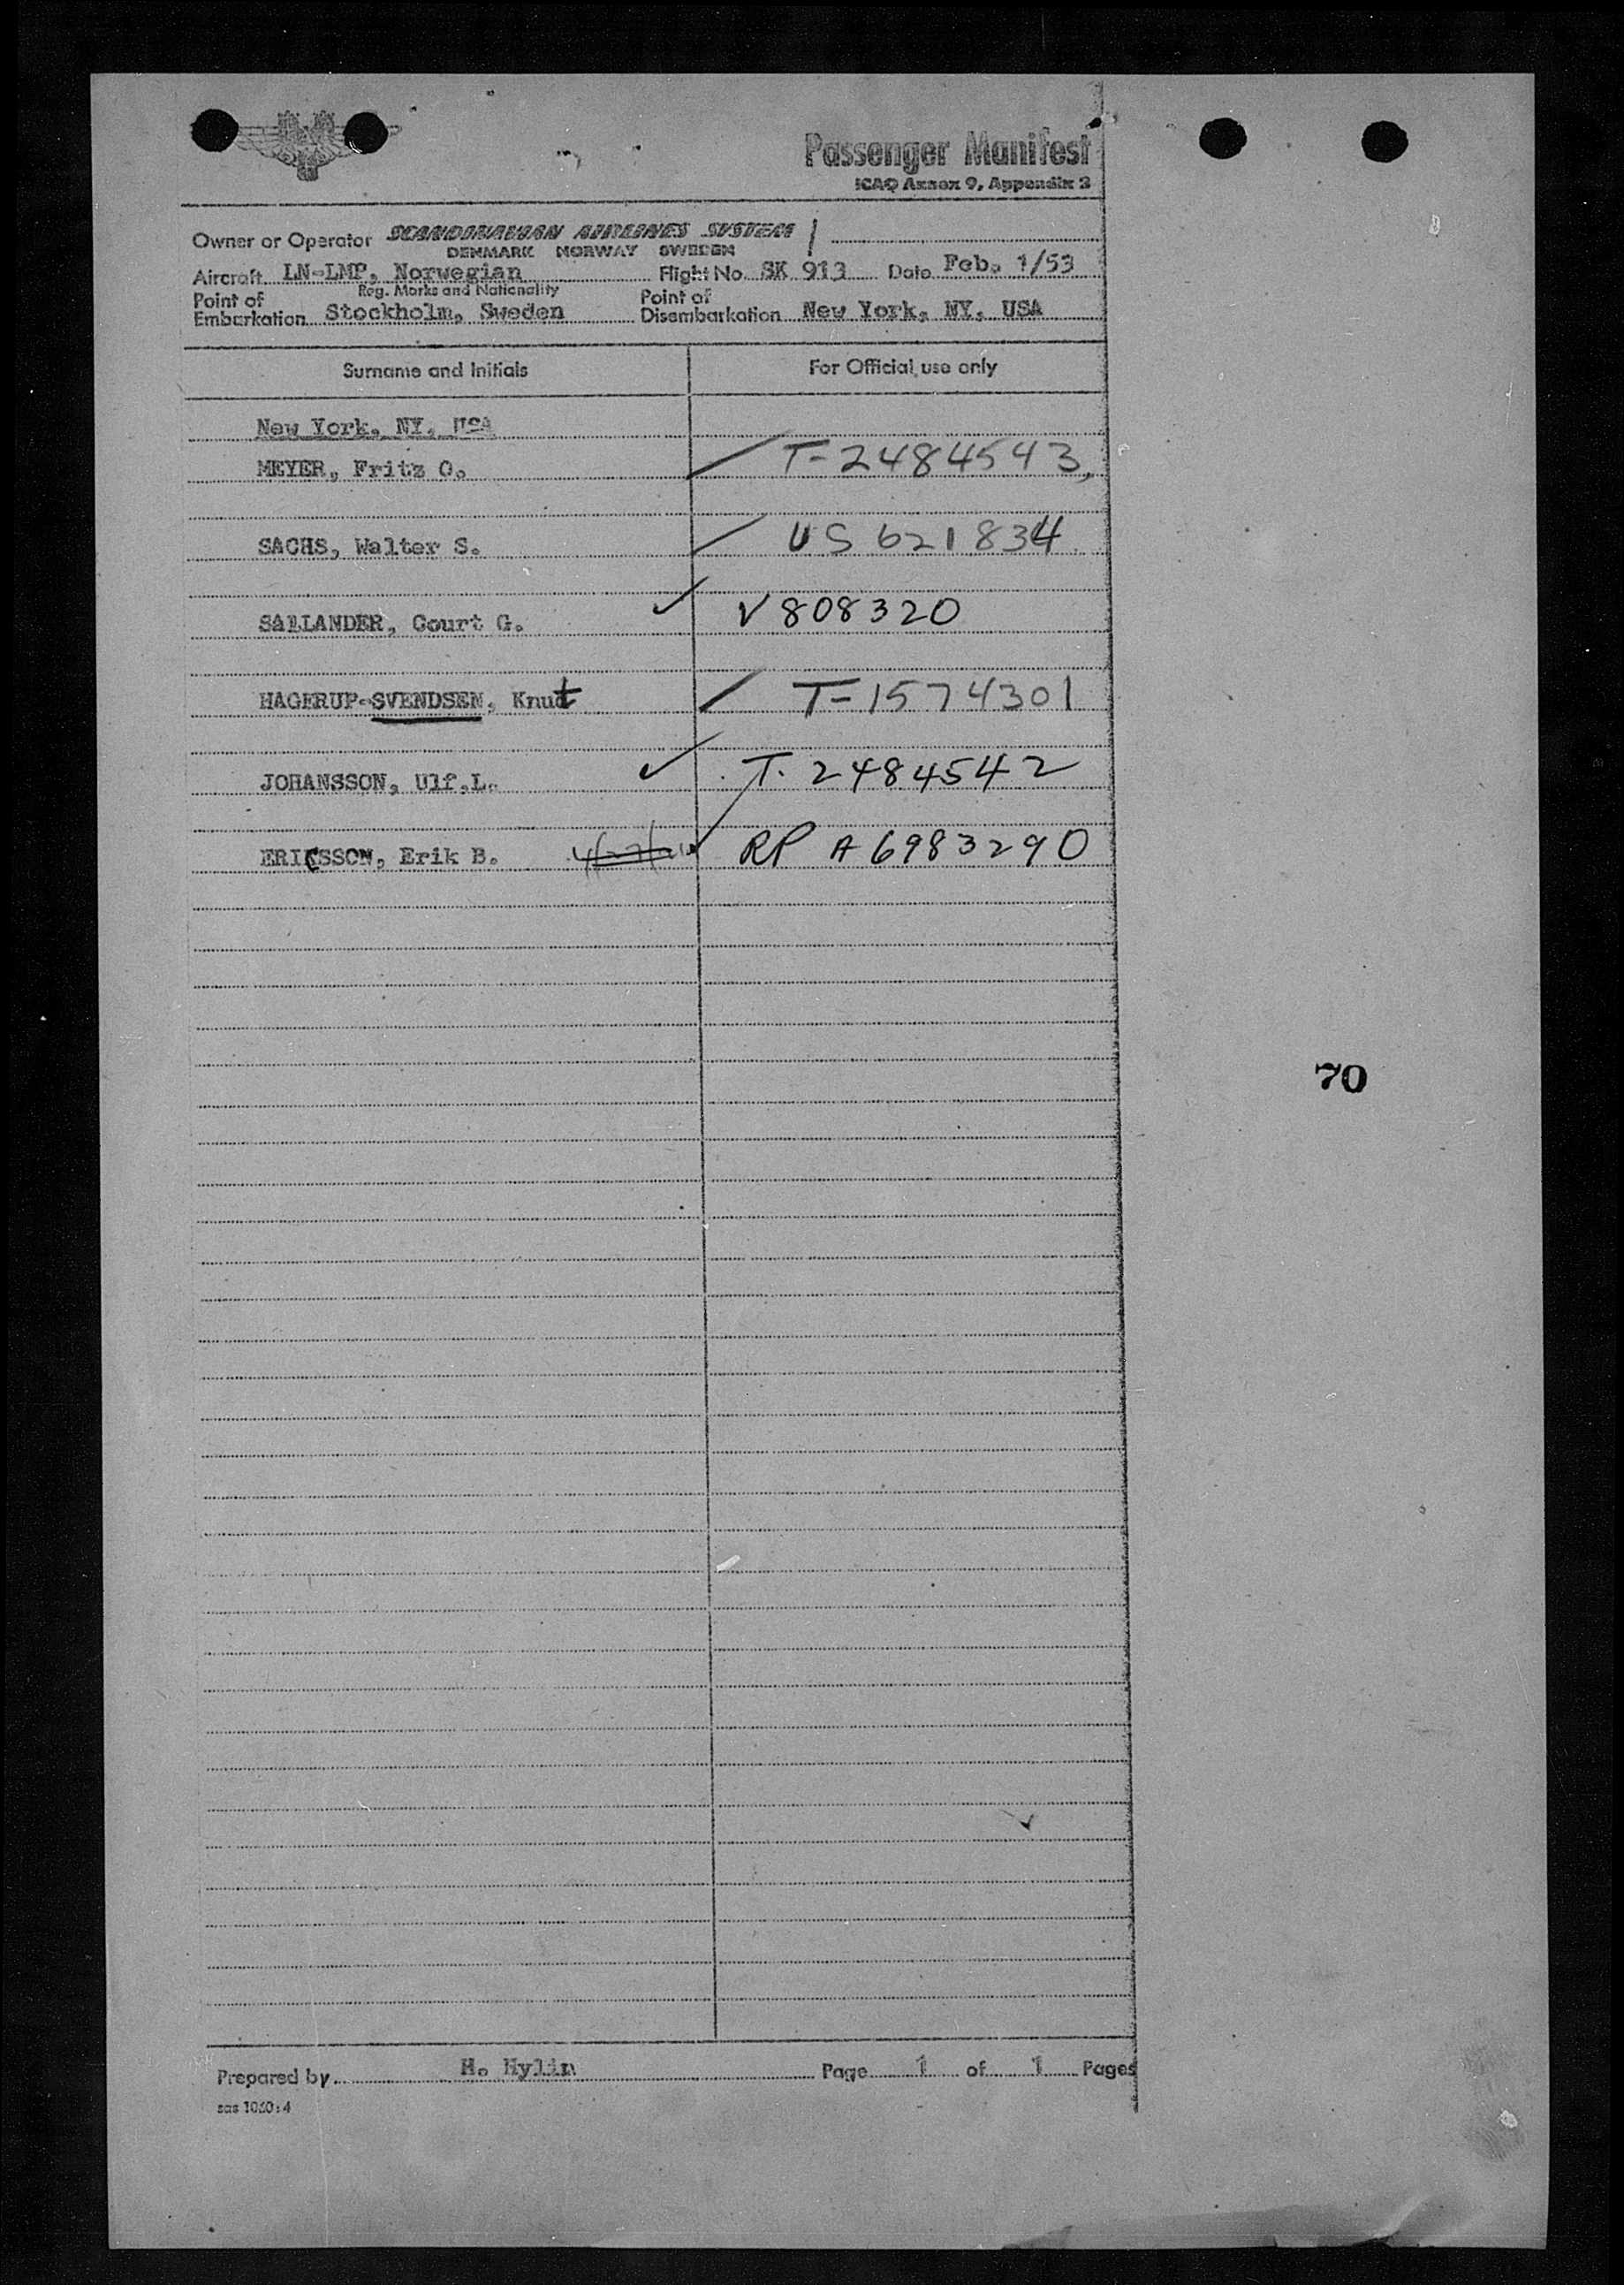 Passenger Manifest
ICAO Annex 9, Appendix 3
Owner or Operator SCANDINAVIAN AIRLINES SYSTEM
DENMARK NORWAY SWEDEN
Aircraft LN-LMP, Norwegian Flight No. SK 913 Date Feb. 1/53
Reg. Marks and Nationality
Point of Embarkation Stockholm, Sweden Point of Disembarkation New York, NY, USA
Surname and Initials For Official use only
New York, NY, USA
MEYER, Fritz O. T-2484543
SACHS, Walter S. US 621834
SALLANDER, Court G. V808320
HAGERUP-SVENDSEN, Knut T-1574301
JOHANSSON, Ulf,L. T. 2484542
ERICSSON, Erik B. RP A6983290
70
Prepared by H. Hylin Page 1 of 1 Pages
sas 1060:4